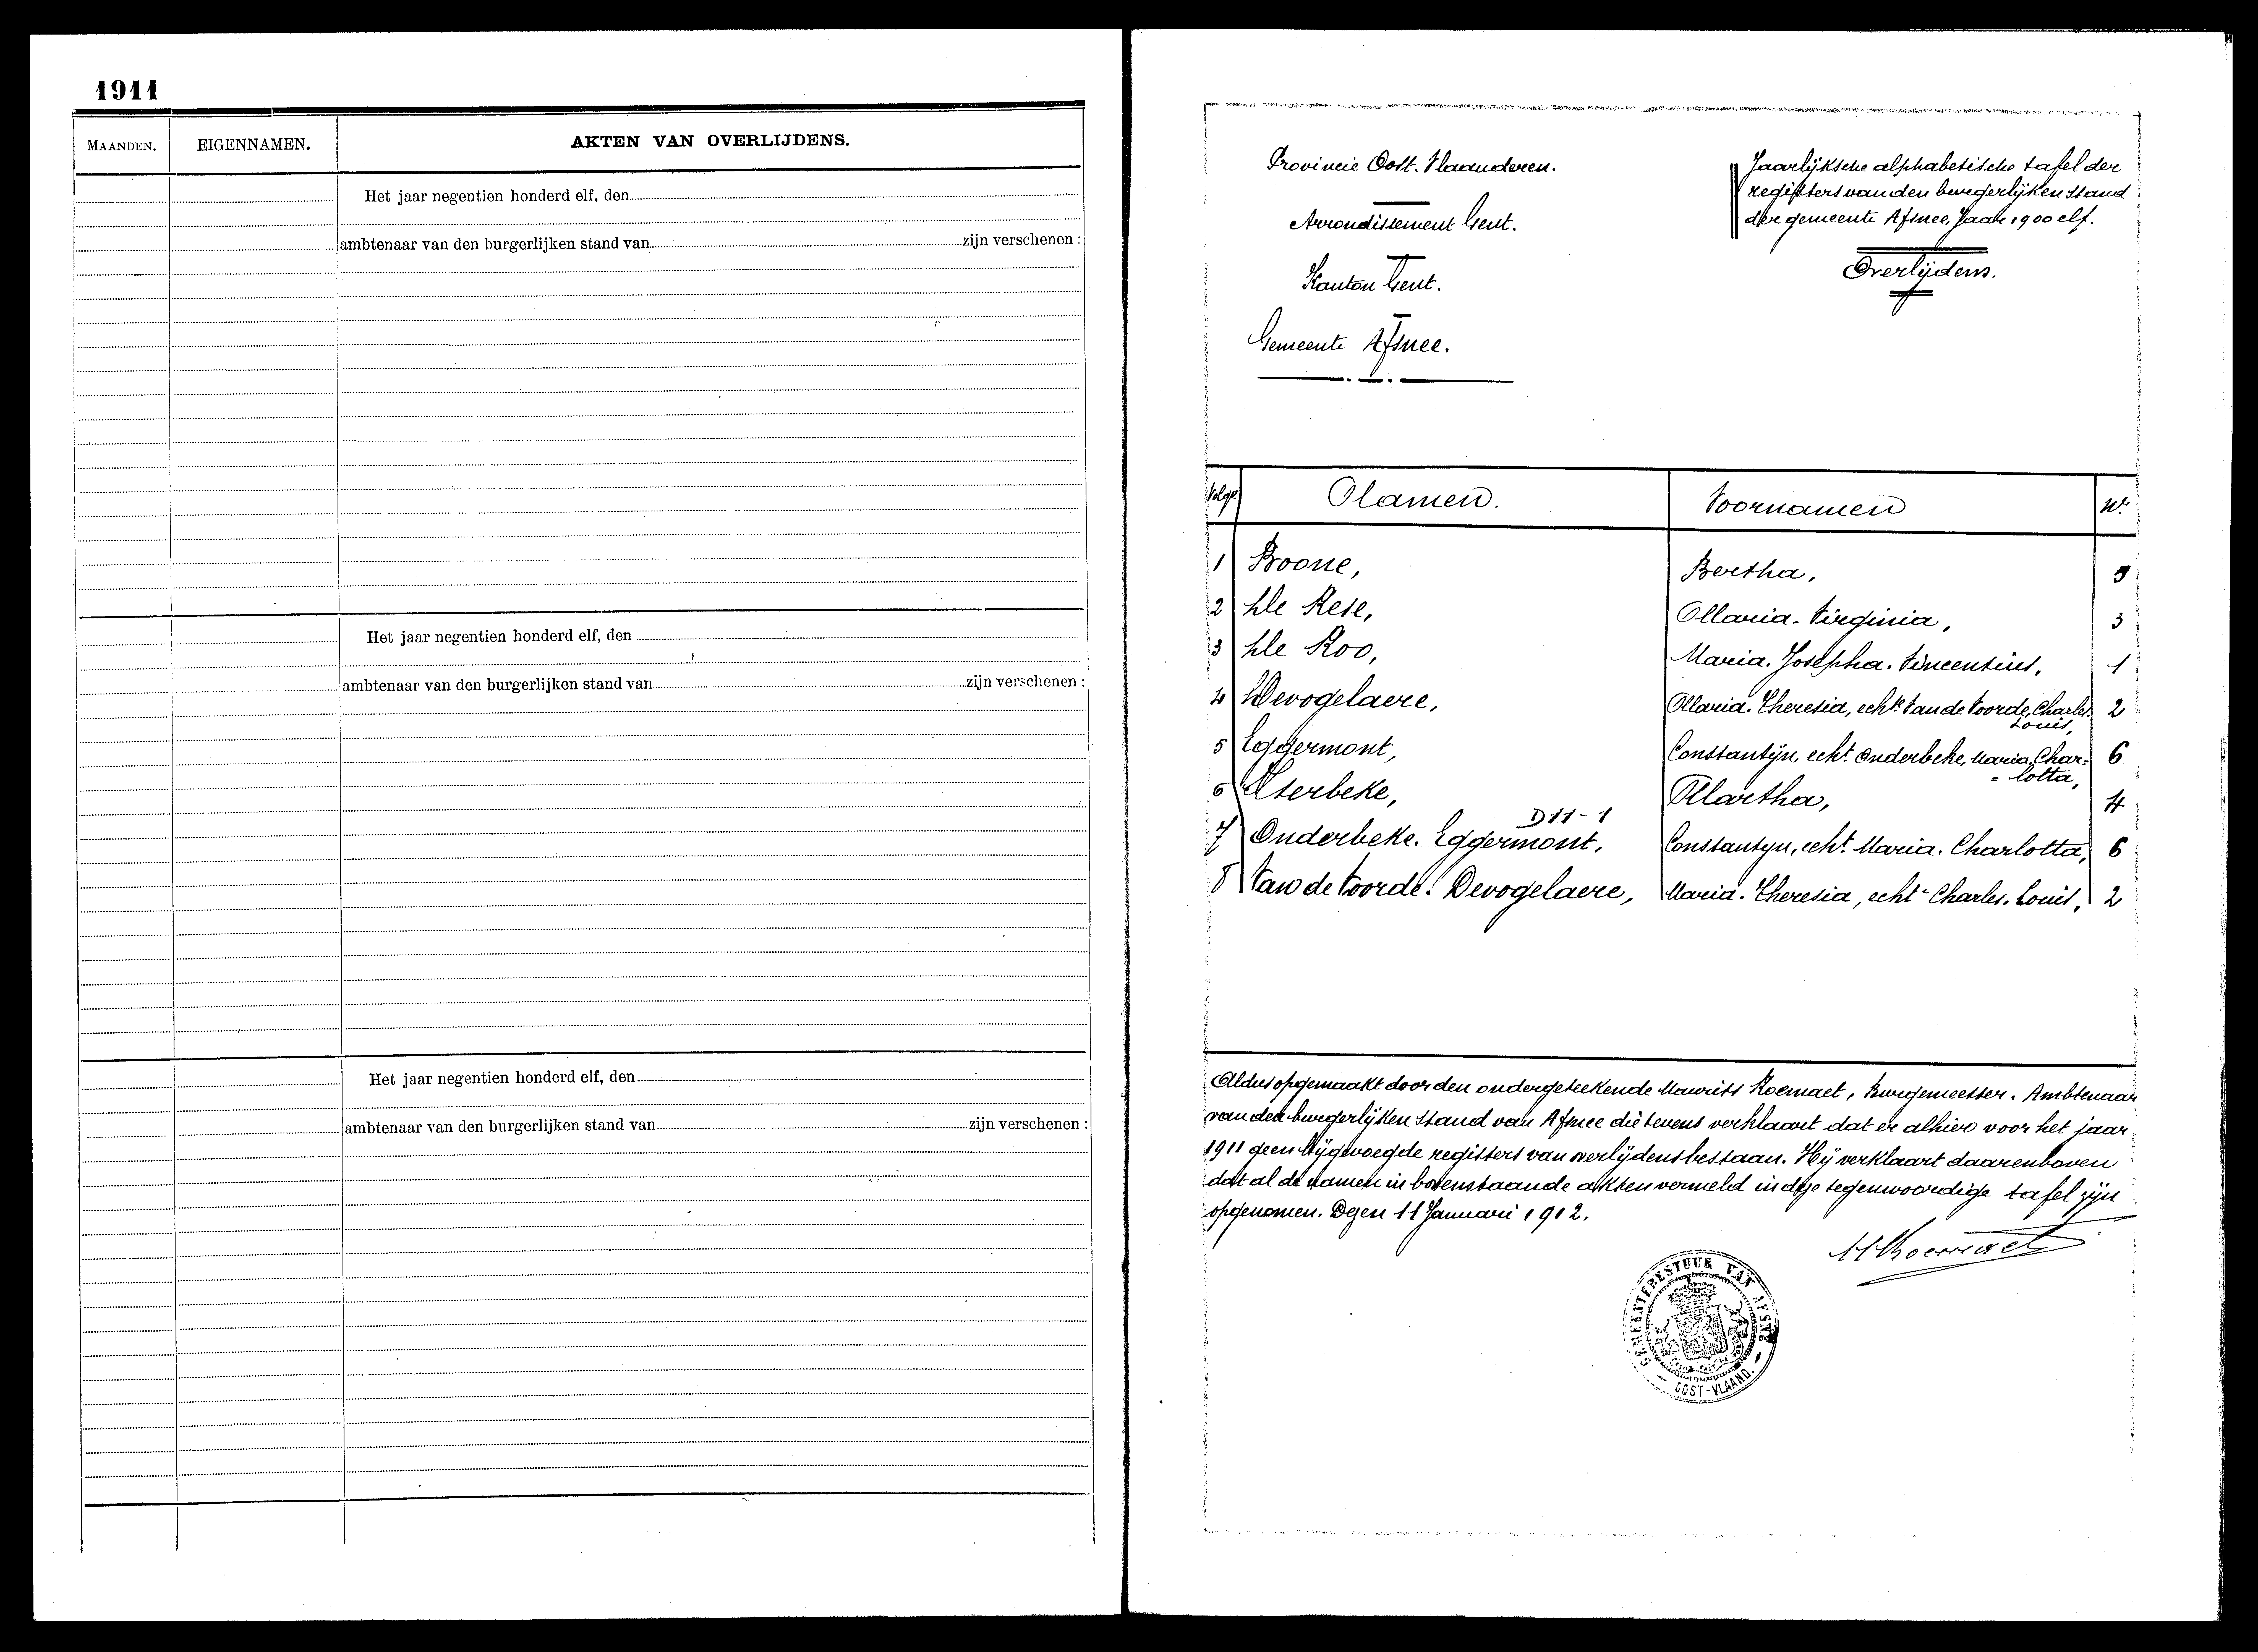 1911
MAANDEN. EIGENNAMEN. AKTEN VAN OVERLIJDENS.
Het jaar negentien honderd elf, den
ambtenaar van den burgerlijken stand van zijn verschenen :
Het jaar negentien honderd elf, den
ambtenaar van den burgerlijken stand van zijn verschenen :
Het jaar negentien honderd elf, den
ambtenaar van den burgerlijken stand van zijn verschenen :
Provincie Oost-Vlaanderen.
Arrondissement Gent.
Kanton Gent.
Gemeente Afsnee.
Jaarlijksche alphabetische tafel der
registers van den burgerlijken stand
der gemeente Afsnee, Jaar 1900 elf.
Overlijdens.
Volgn. Namen. Voornamen Nr.
1 Boone, Bertha, 5
2 De Rese, Maria-Virginia, 3
3 De Roo, Maria-Josepha-Vincentius, 1
4 Devogelaere, Maria-Theresia, echte Van de Voorde, Charles- 2
Louis,
5 Eggermont, Constantijn, echt Onderbeke, Maria Char- 6
= lotta,
6 Esterbeke, Martha, 4
D11-1
7 Onderbeke-Eggermont, Constantyn, echt Maria-Charlotta, 6
8 Van de Voorde-Devogelaere, Maria-Theresia, echte Charles-Louis, 2
Aldus opgemaakt door den ondergeteekende Maurits Roemaet, Burgemeester-Ambtenaar
van den burgerlijken stand van Afsnee die tevens verklaart dat er alhier voor het jaar
1911 geen bijgevoegde registers van overlijdens bestaan. Hij verklaart daarenboven
dat al de namen in bovenstaande akten vermeld in deze tegenwoordige tafel zijn
opgenomen. Dezen 11 Januari 1912.
M Roemaet
GEMEENTEBESTUUR VAN AFSNEE
OOST-VLAAND.